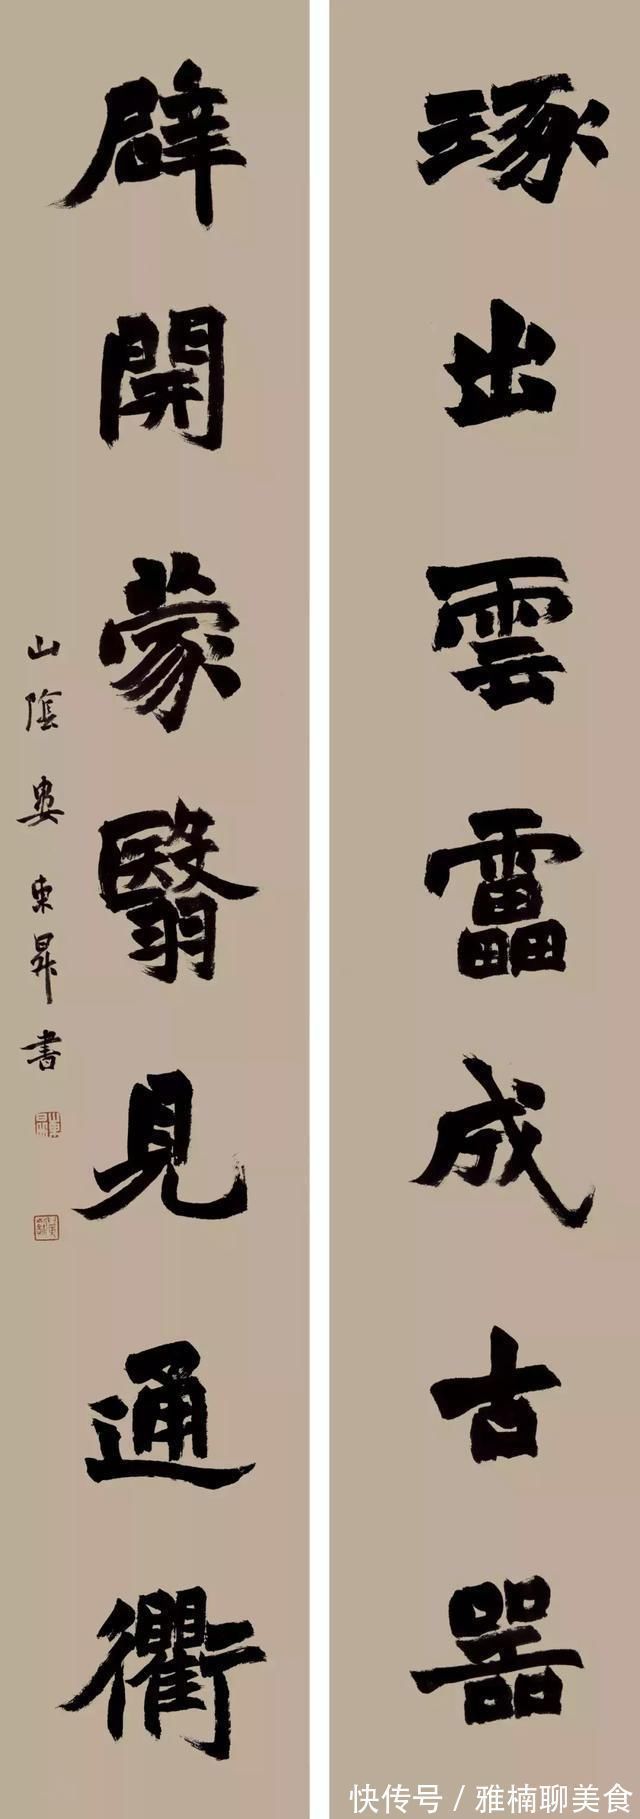 琢出雲靁成古器
辟開蒙翳見通衢
山陰婁東昇書
快传号 / 雅楠聊美食